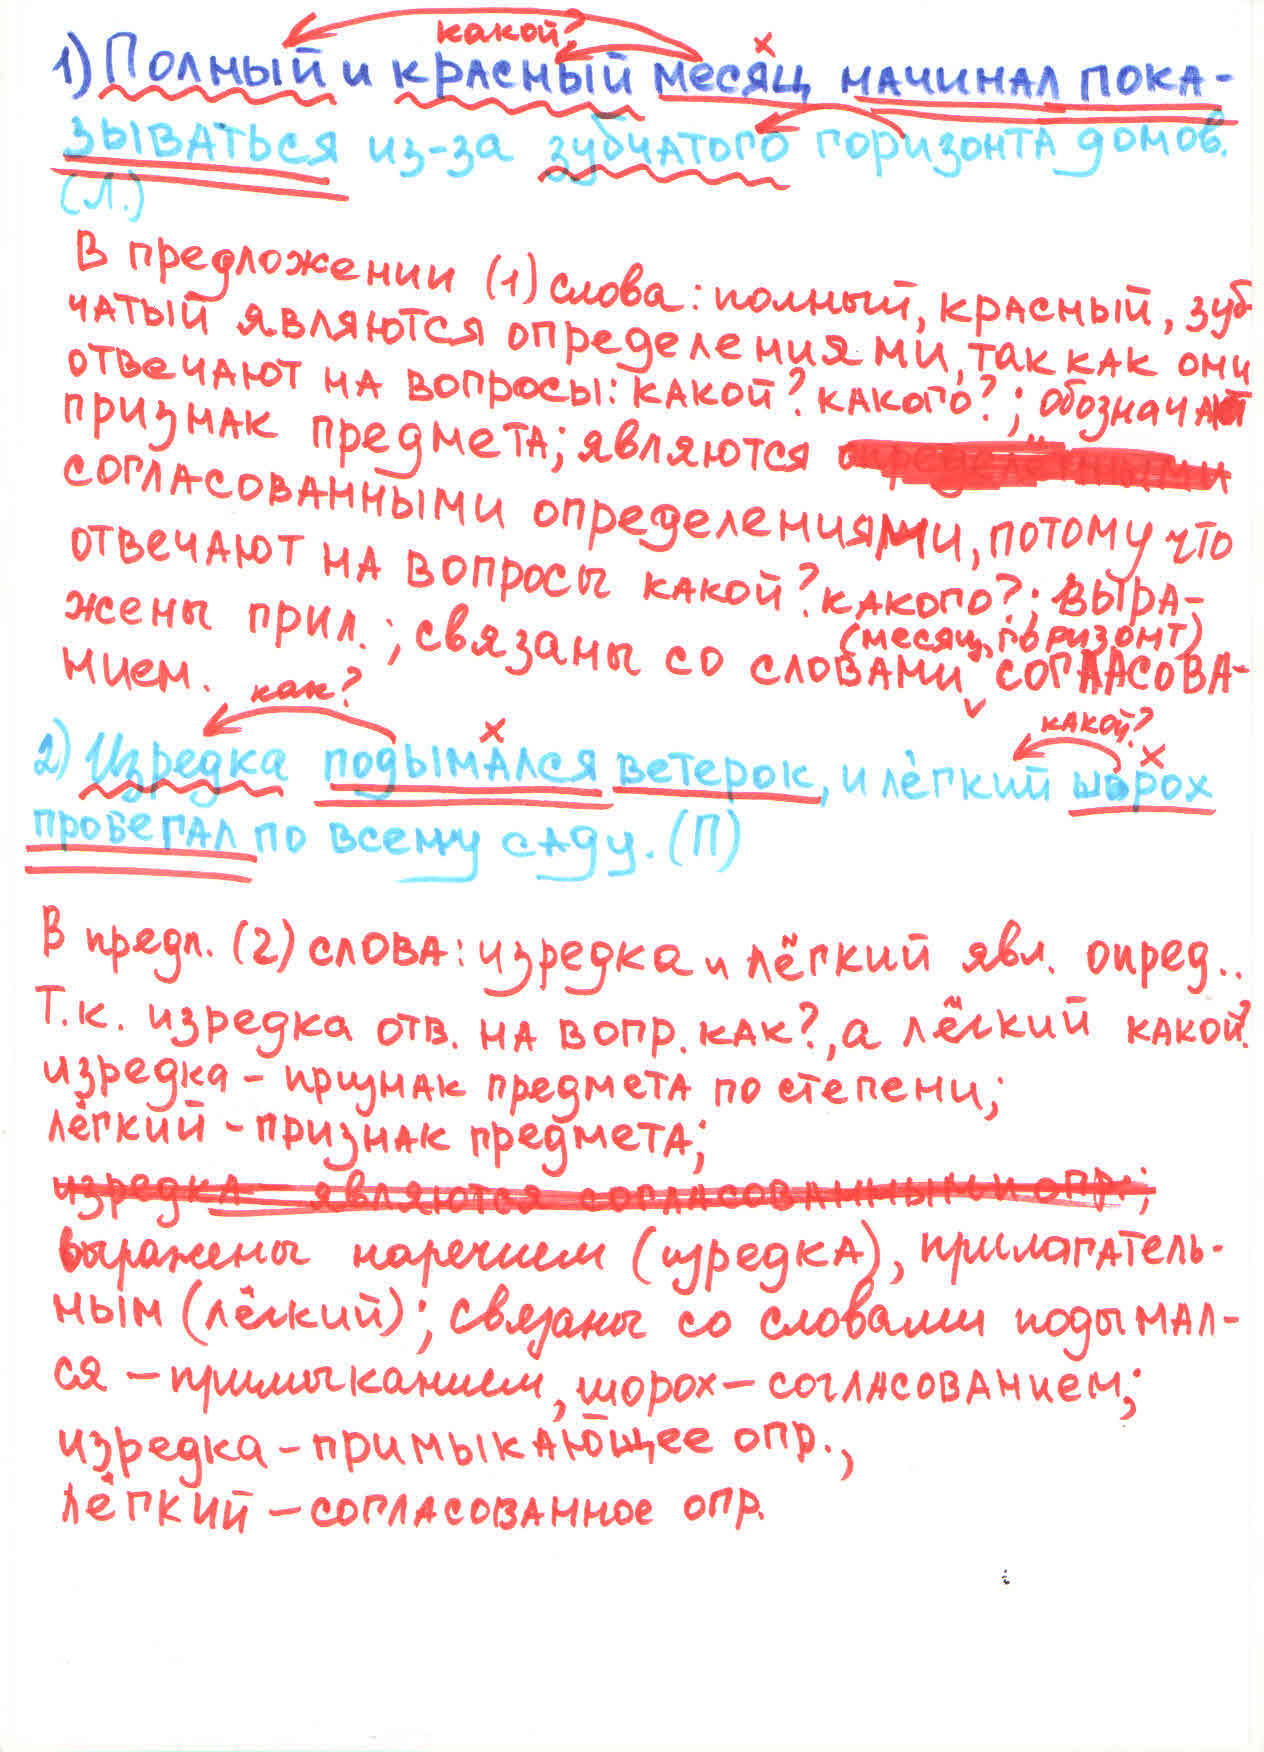 какой?
1) Полный и красный месяц начинал пока-
зываться из-за зубчатого горизонта домов.
(Л.)
В предложении (1) слова: полный, красный, зуб
чатый являются определениями, так как они
отвечают на вопросы: какой? какого?; обозначают
признак предмета; являются
согласованными определениями, потому что
отвечают на вопросы какой? какого?; выра-
жены прил.; связаны со словами (месяц, горизонт) согласова-
нием.
как?
какой?
2) Изредка подымался ветерок, и лёгкий шорох
пробегал по всему саду. (П)
В предл. (2) слова: изредка и лёгкий явл. опред..
Т.к. изредка отв. на вопр. как?, а лёгкий какой?
изредка - признак предмета по степени;
лёгкий - признак предмета;
изредка являются согласованными опр.;
выражены наречием (изредка), прилагатель-
ным (лёгкий); связаны со словами подымал-
ся - примыканием, шорох - согласованием;
изредка - примыкающее опр.,
лёгкий - согласованное опр.